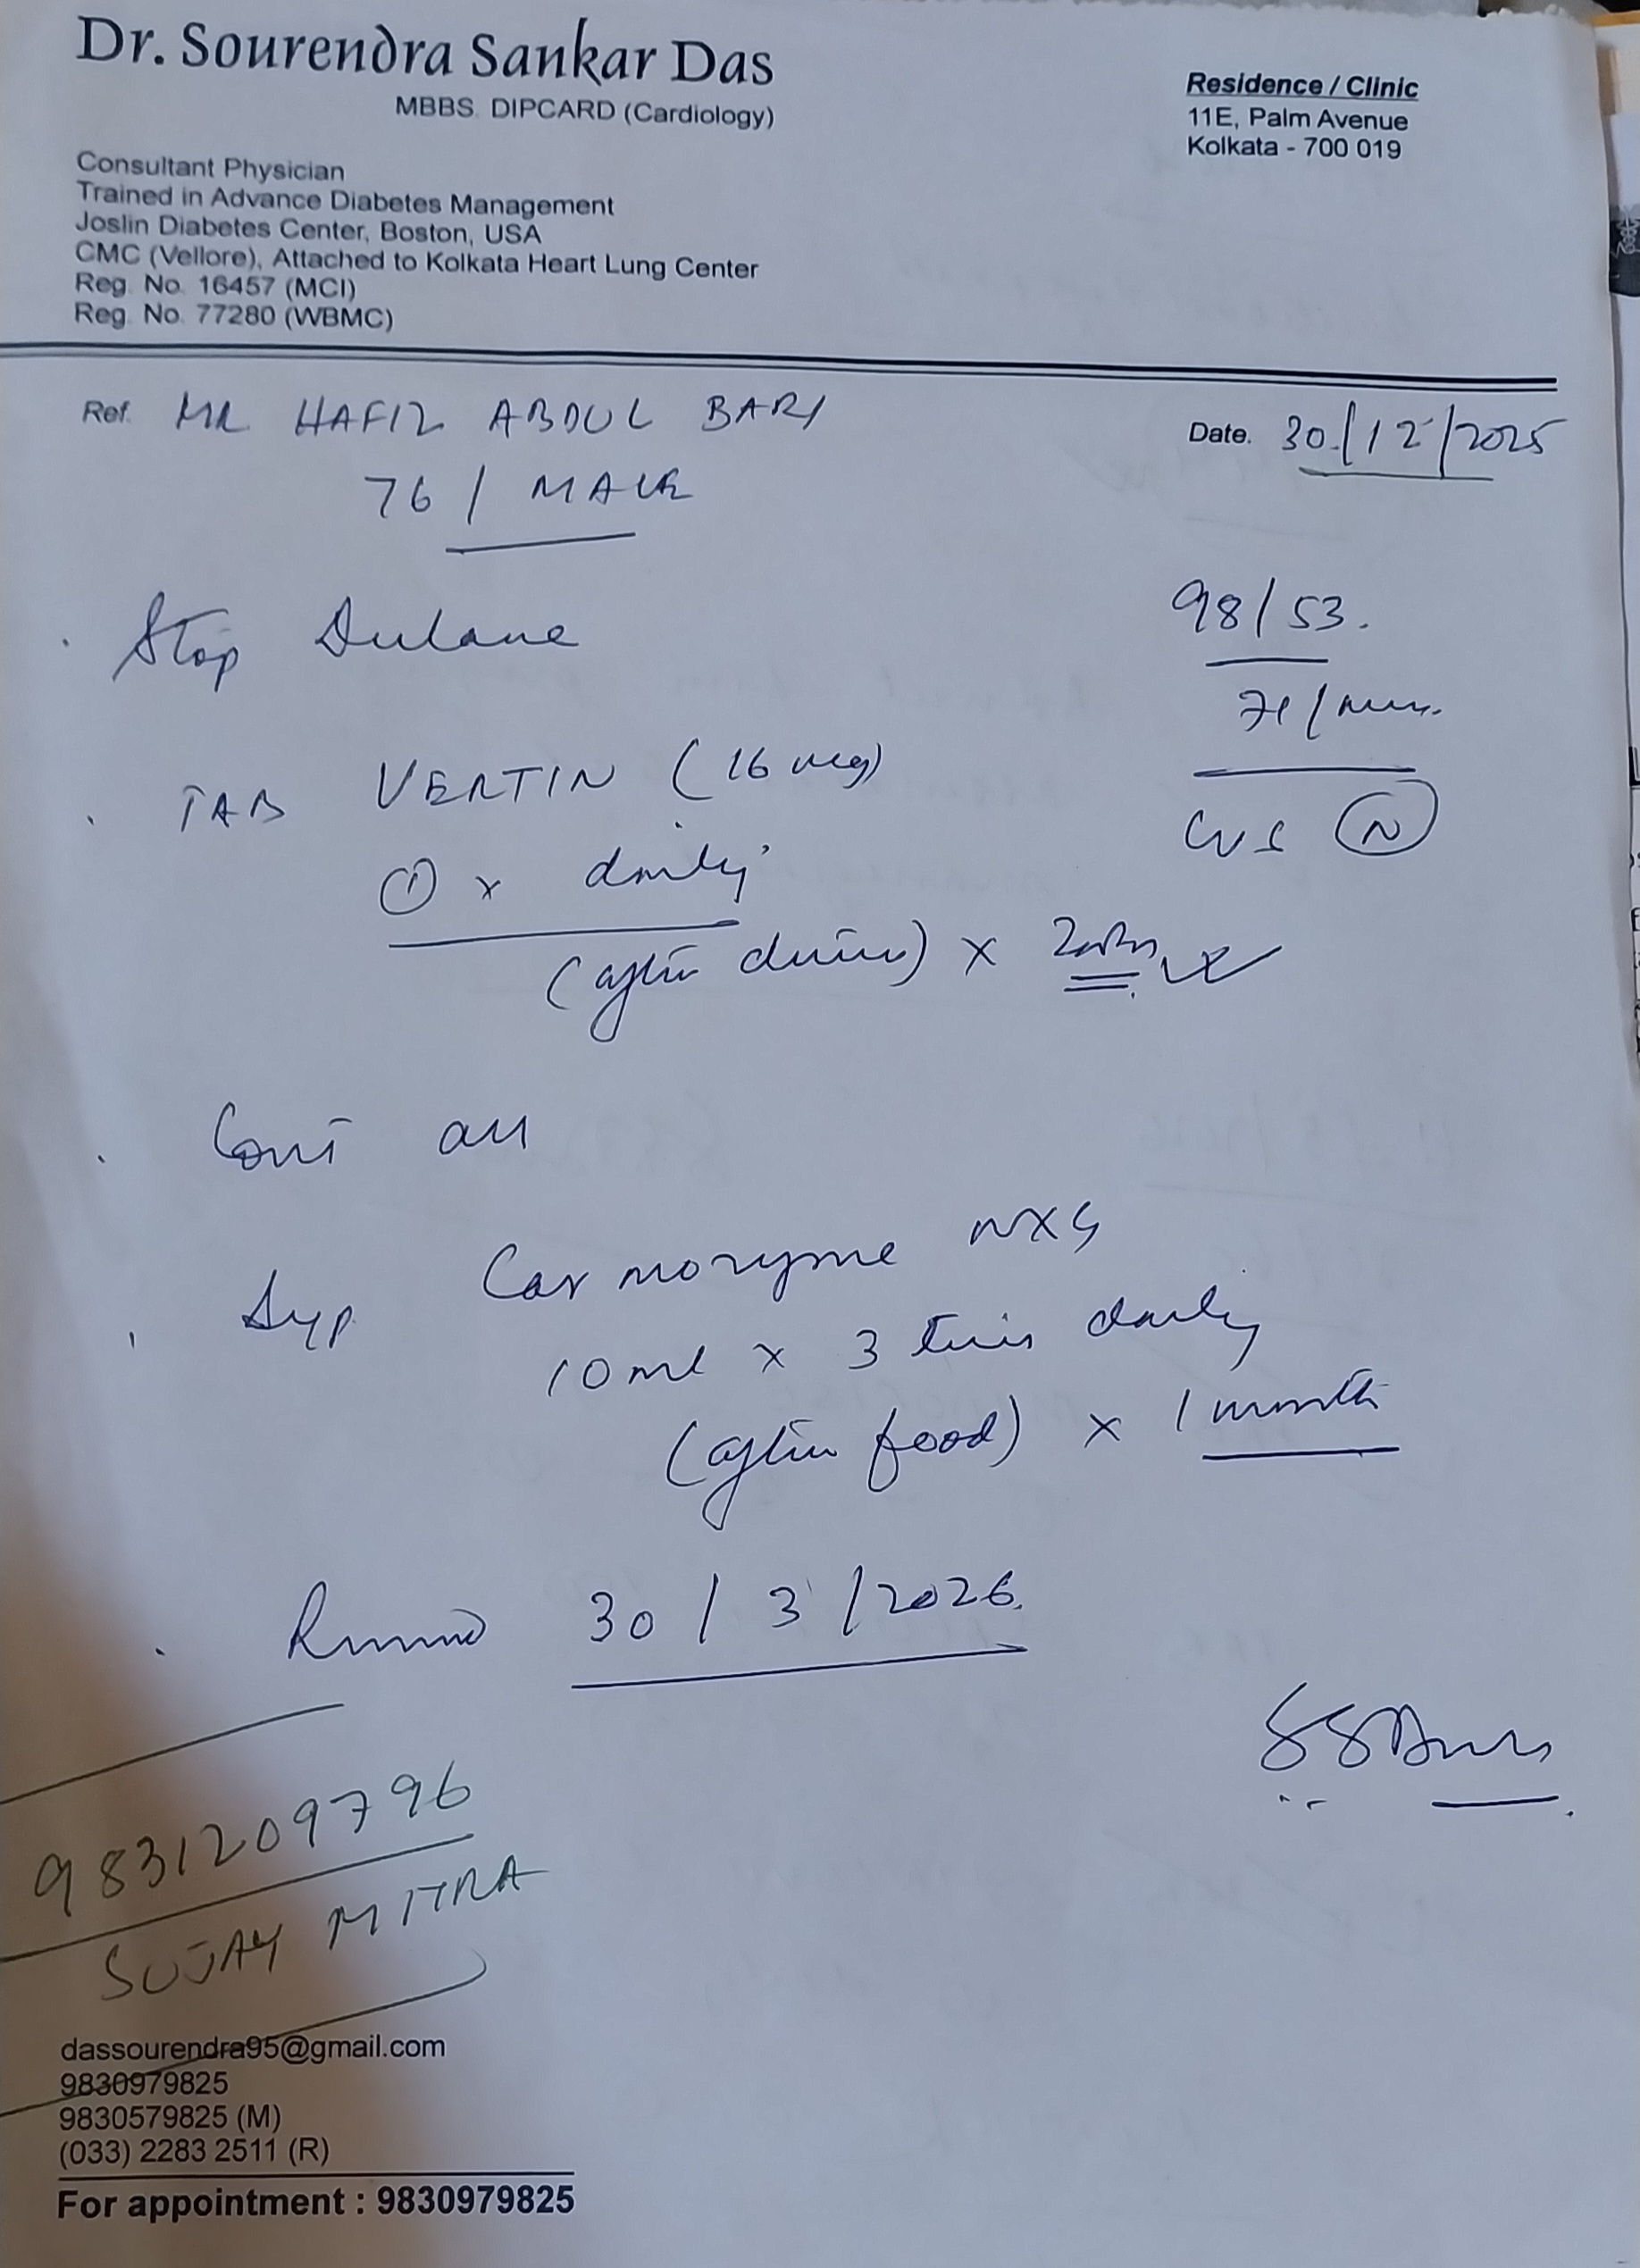 Dr. Sourendra Sankar Das
MBBS. DIPCARD (Cardiology)
Consultant Physician
Trained in Advance Diabetes Management
Joslin Diabetes Center, Boston, USA
CMC (Vellore), Attached to Kolkata Heart Lung Center
Reg. No. 16457 (MCI)
Reg. No. 77280 (WBMC)
Residence / Clinic
11E, Palm Avenue
Kolkata - 700 019
Ref. MR HAFIZ ABDUL BARI
76 / MALE
Date. 30/12/2025
98/53.
71/min.
CVS N
Stop
TAB VERTIN (16 mg)
1 x daily
(after dinner) x
Cont all
Syp Carmozyme
10 ml x 3 times daily
(after food) x 1 month
30/3/2026.
SSDas
9831209796
SUJAY MITRA
dassourendra95@gmail.com
9830979825
9830579825 (M)
(033) 2283 2511 (R)
For appointment : 9830979825